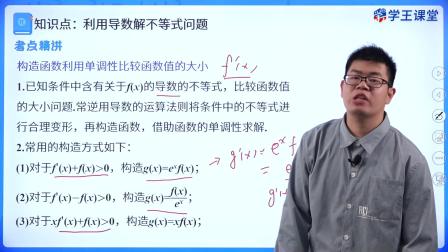 学王课堂
知识点：利用导数解不等式问题
考点精讲
构造函数利用单调性比较函数值的大小
f'(x)
1.已知条件中含有关于f(x)的导数的不等式，比较函数值
的大小问题.常逆用导数的运算法则将条件中的不等式进
行合理变形，再构造函数，借助函数的单调性求解.
2.常用的构造方式如下：
(1)对于f'(x)+f(x)>0，构造g(x)=eˣf(x)；
→ g'(x)=eˣ f
=
(2)对于f'(x)−f(x)>0，构造g(x)=f(x)/eˣ；
g'(x)
(3)对于xf'(x)+f(x)>0，构造g(x)=xf(x)；